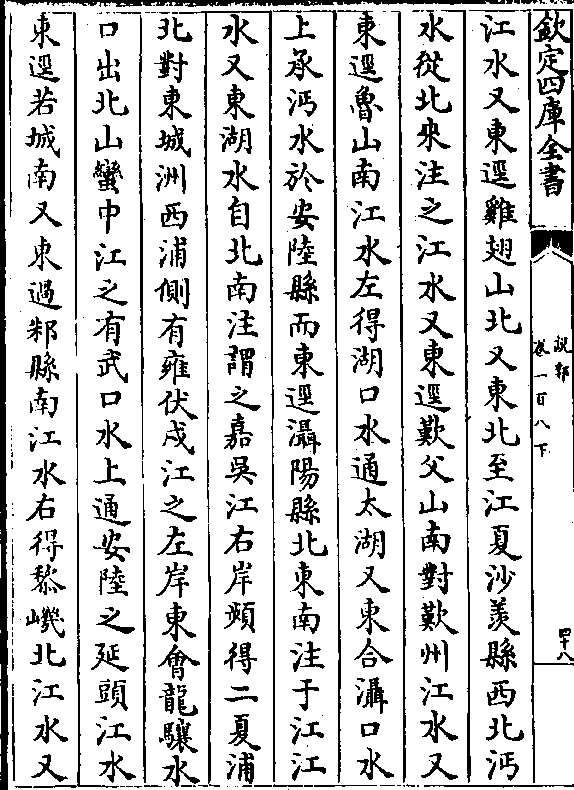 欽定四庫全書
説郛
卷一百八下
四十八
江水又東逕雞翅山北又東北至江夏沙羨縣西北沔
水從北來注之江水又東逕歎父山南對歎州江水又
東逕魯山南江水左得湖口水通太湖又東合灄口水
上承沔水於安陸縣而東逕灄陽縣北東南注于江江
水又東湖水自北南注謂之嘉吳江右岸頻得二夏浦
北對東城洲西浦側有雍伏戍江之左岸東會龍驤水
口出北山蠻中江之有武口水上通安陸之延頭江水
東逕若城南又東過邾縣南江水右得黎嶬北江水又